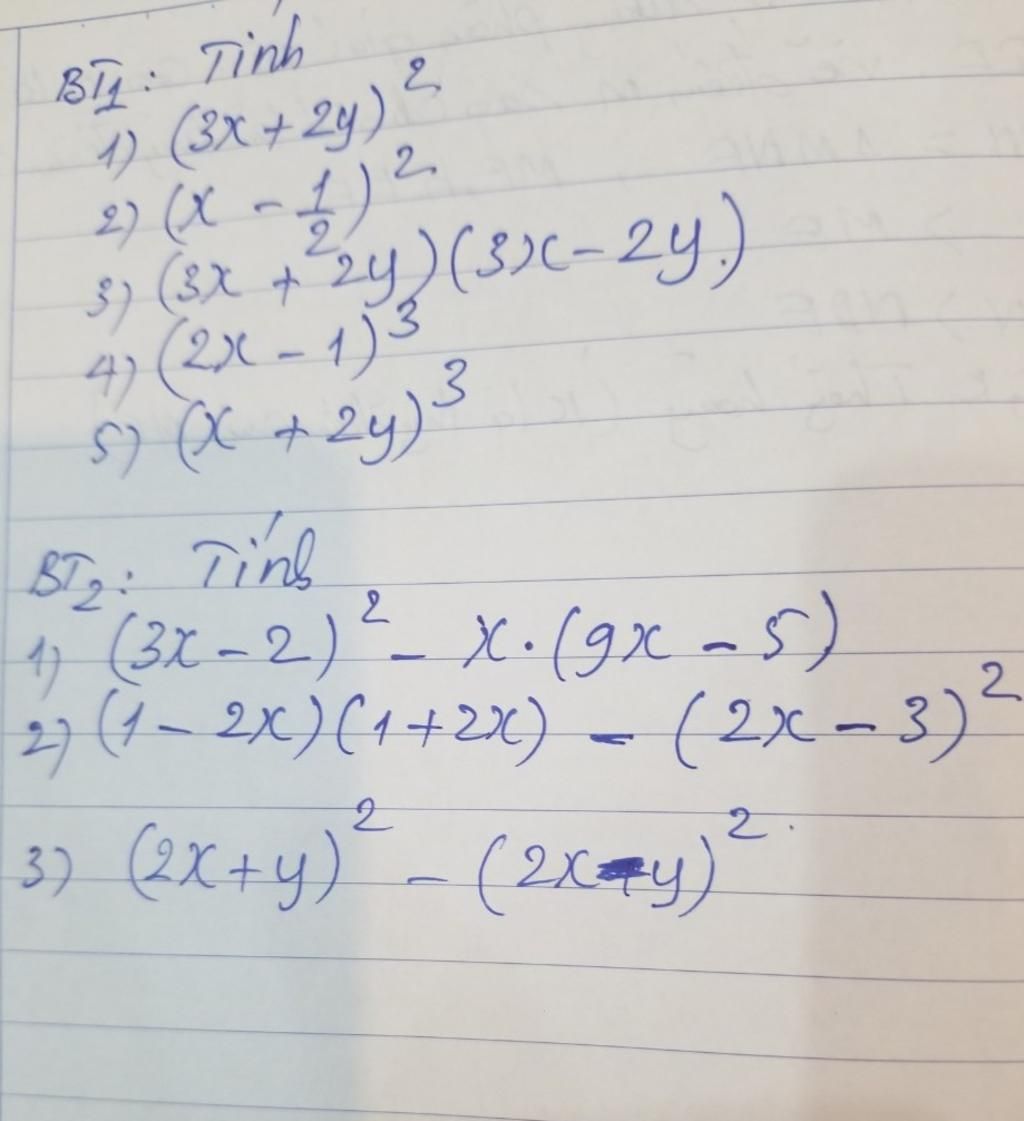 BT1: Tính
1) (3x + 2y)²
2) (x - 1/2)²
3) (3x + 2y)(3x - 2y)
4) (2x - 1)³
5) (x + 2y)³
BT2: Tính
1) (3x - 2)² - x.(9x - 5)
2) (1 - 2x)(1 + 2x) - (2x - 3)²
3) (2x + y)² - (2x - y)²